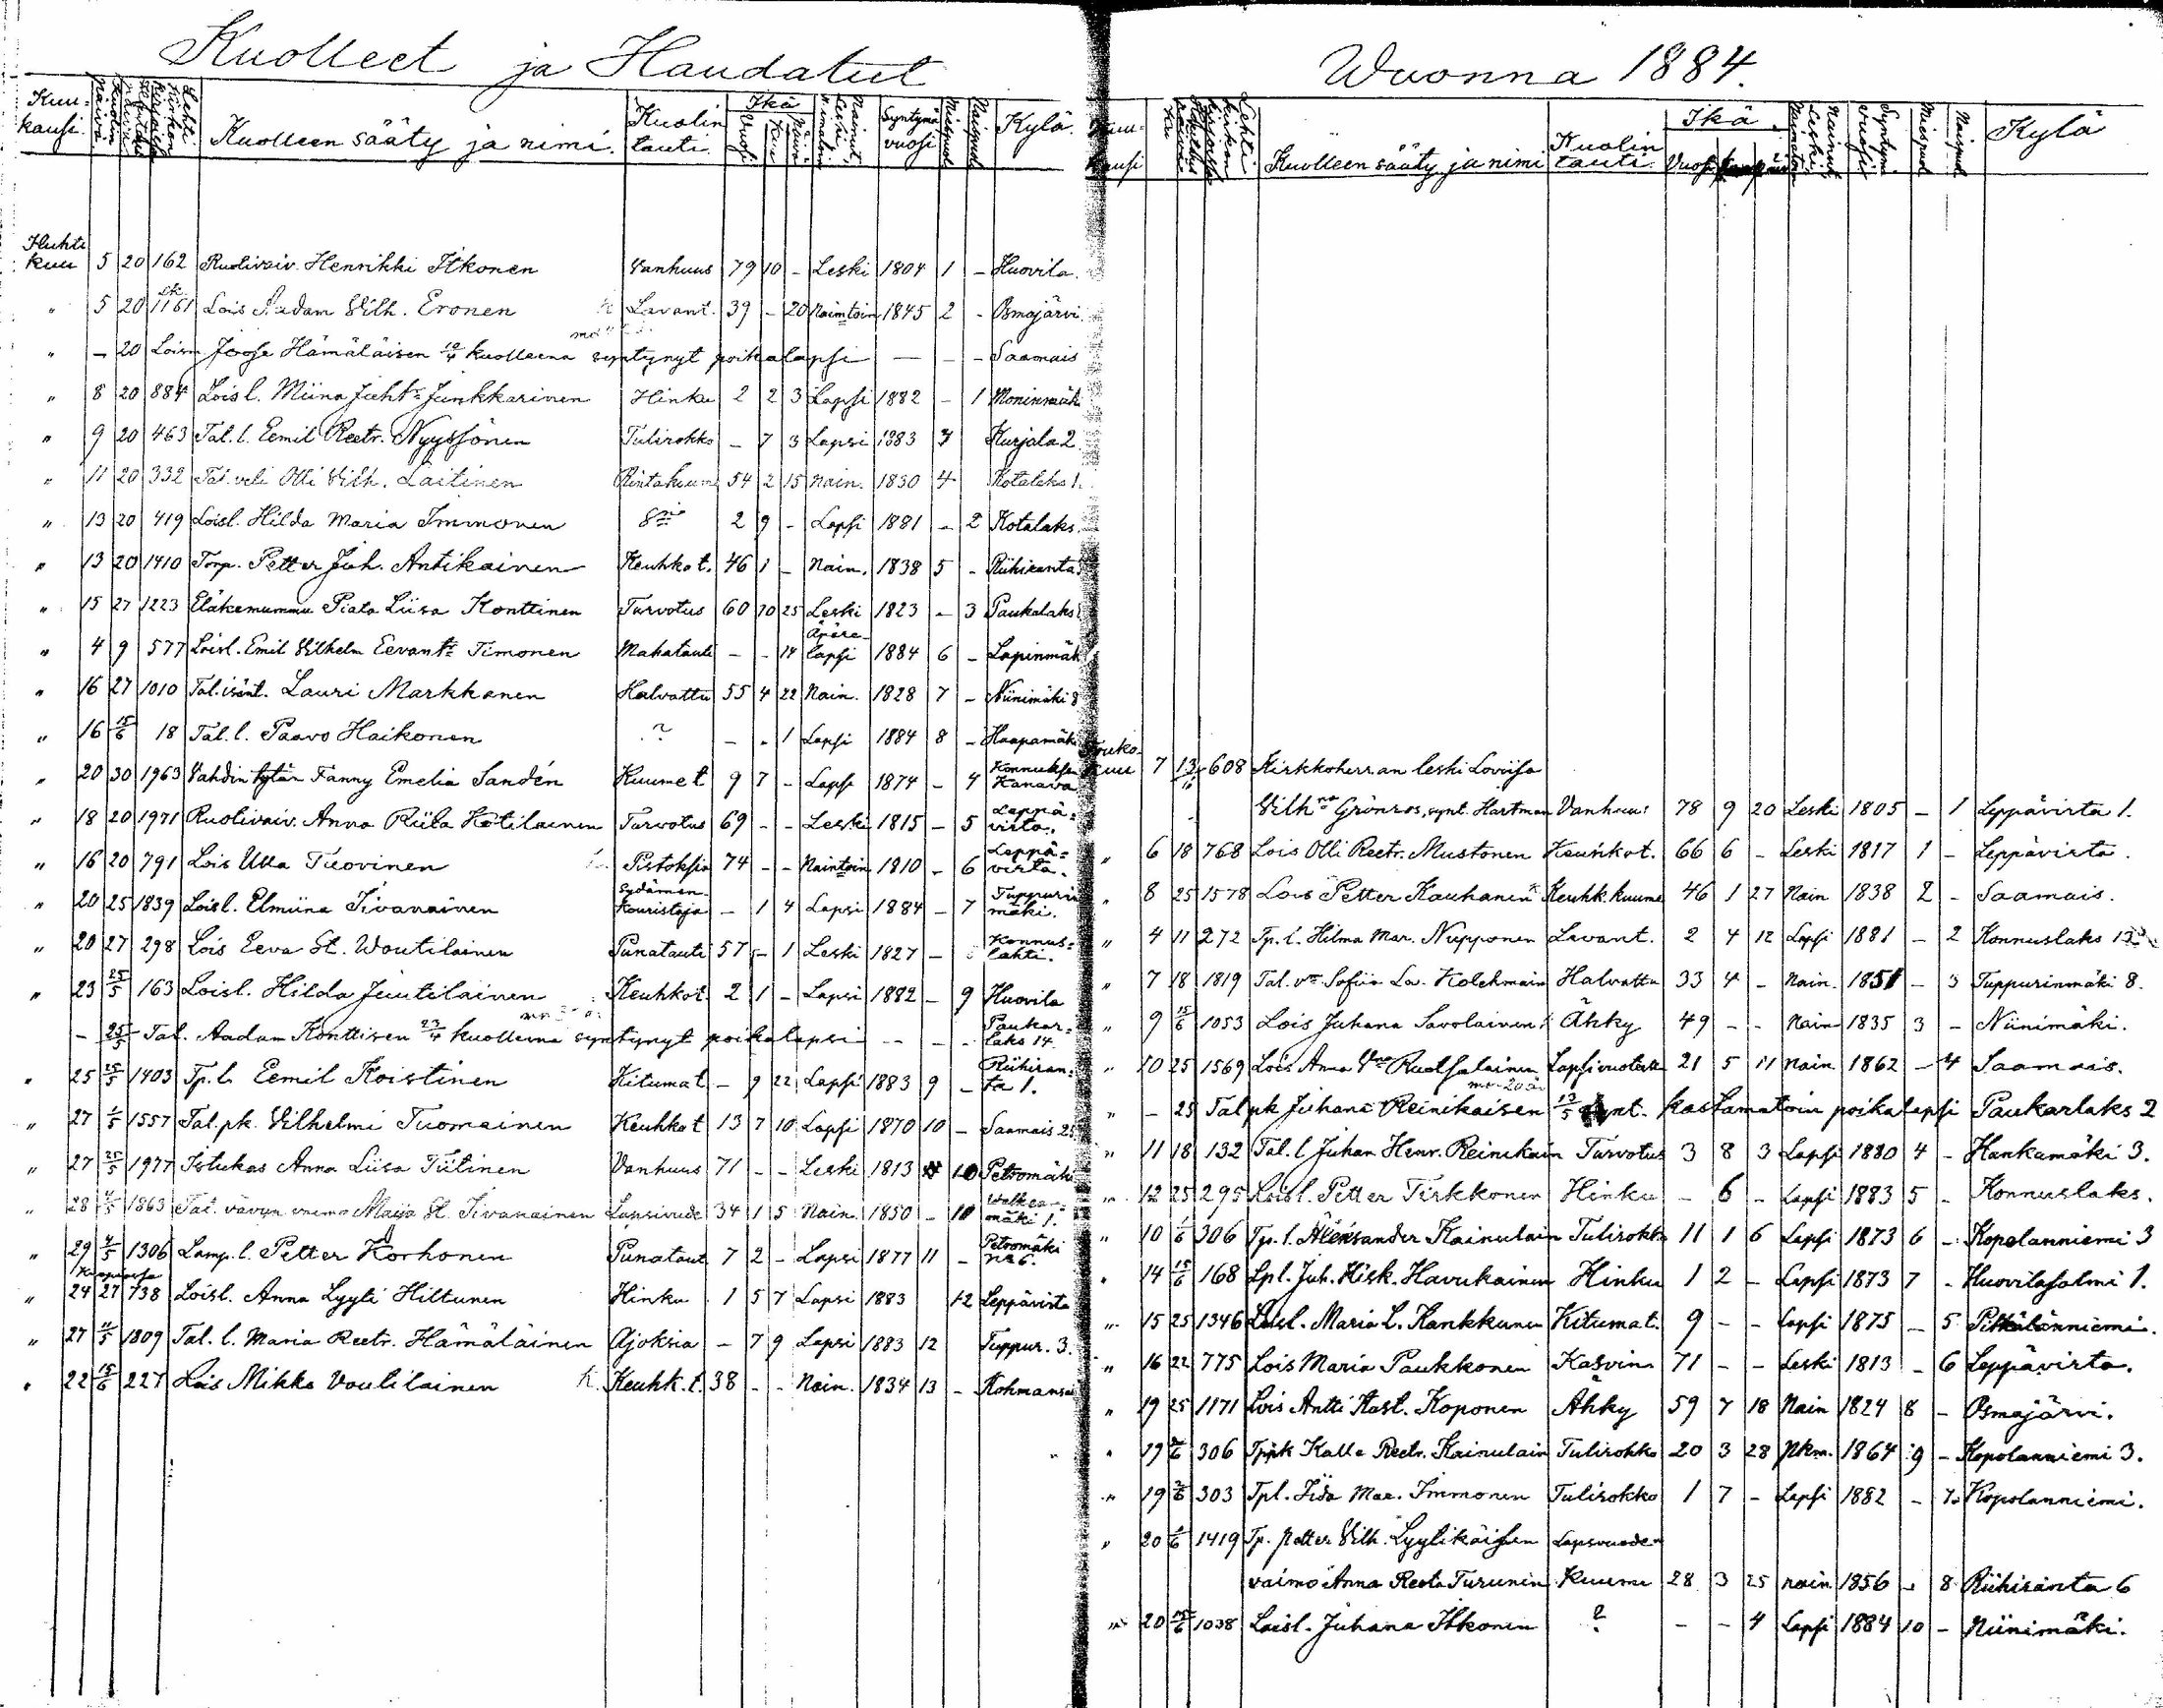 Kuolleet ja Haudatut
Kuu-kausi. Kuolleen sääty ja nimi. Kuolin tauti Ikä Vuosi Syntymä vuosi Miespuol. Naispuol. Kylä.
Huhti kuu 5 20 162 Ruotivaiv. Henrikki Itkonen Vanhuus 79 10 - Leski 1804 1 - Huovila.
" 5 20 1161 Lois Aadam Vilh. Eronen Lavant. 39 - 20 Naimtoin 1845 2 - Osmajärvi.
" - 20 Loism. Joose Hämäläisen 10/4 kuolleena syntynyt poikalapsi - - - Saamais
" 8 20 884 Lois l. Miina Juht: Junkkarinen Hinku 2 2 3 Lapsi 1882 - 1 Moninmäki
" 9 20 463 Tal. l. Eemil Reetr. Nyyssönen Tulirokko - 7 3 Lapsi 1883 3 Kurjala 2.
" 11 20 332 Tal. veli Olli Vilh. Laitinen Rintakuume 54 2 15 Nain. 1830 4 Kotalaks 1.
" 13 20 419 Loisl. Hilda Maria Immonen 2 9 - Lapsi 1881 - 2 Kotalaks.
" 13 20 1410 Torp. Petter Juh. Antikainen Keuhkot. 46 1 - Nain. 1838 5 - Riihiranta
" 15 27 1223 Eläkemummu Piata Liisa Konttinen Turvotus 60 10 25 Leski 1823 - 3 Paukalaks
" 4 9 577 Loisl. Emil Vilhelm Eevant: Timonen Mahatauti - - 14 Äpäre-lapsi 1884 6 - Lapinmäk
" 16 27 1010 Tal. isänt. Lauri Markkanen Halvattu 55 4 22 Nain. 1828 7 - Niinimäki 8
" 16 15/6 18 Tal. l. Paavo Haikonen ? - - 1 Lapsi 1884 8 - Haapamäk
" 20 30 1963 Vahdin tytär Fanny Emelia Sandén Kuumet 9 7 - Lapsi 1874 - 4 Konnuksen Kanava
" 18 20 1971 Ruotivaiv. Anna Riita Kotilainen Turvotus 69 - - Leski 1815 - 5 Leppä-virta.
" 16 20 791 Lois Ulla Tuovinen Pistoksia 74 - - Naimtoin 1810 - 6 Leppä-virta.
" 20 25 1839 Loisl. Elmiina Tivanainen Sydämen-kouristaja - 1 4 Lapsi 1884 - 7 Tuppurin mäki.
" 20 27 298 Lois Eeva St. Woutilainen Punatauti 57 - 1 Leski 1827 - Konnus-lahti.
" 23 25/5 163 Loisl. Hilda Juutilainen Keuhkot 2 1 - Lapsi 1882 - 9 Huovila
- 25/5 Tal. Aadam Konttisen 23/4 kuolleena syntynyt poikalapsi - - - Paukar-laks 14.
" 25 25/5 1403 Tp. l. Eemil Koistinen Kitumat - 9 22 Lapsi 1883 9 - Riihiran-ta 1.
" 27 1/5 1557 Tal. pk. Vilhelmi Tuomainen Keuhkot 13 7 10 Lapsi 1870 10 - Saamais 25
" 27 25/5 1977 Istukas Anna Liisa Tiitinen Vanhuus 71 - - Leski 1813 10 Petromäki
" 28 4/5 1863 Tal. vävyn vaimo Maija St. Tivanainen Lapsivuode 34 1 5 Nain. 1850 - 10 Walkea-mäki 1.
" 29 4/5 1306 Lamp. l. Petter Korhonen Punataut 7 2 - Lapsi 1877 11 - Petromäki No 6.
Kuopiossa
" 24 27 738 Loisl. Anna Lyyti Hiltunen Hinku 1 5 7 Lapsi 1883 12 Leppävirta
" 27 11/5 1809 Tal. l. Maria Reetr. Hämäläinen Ajoksia - 7 9 Lapsi 1883 12 Tuppur. 3.
" 22 15/6 227 Lois Mikko Voutilainen K. Keuhk. t. 38 - - Nain. 1834 13 - Kohmansa
Wuonna 1884.
Kuu-kausi Kuolleen sääty ja nimi Kuolin tauti. Ikä Vuosi Syntym. vuosi Miespuol Naispuol. Kylä
Touko-kuu 7 13/10 608 Kirkkoherran leski Lovisa
Vilhna Grönros, synt. Hartman Vanhuus 78 9 20 Leski 1805 - 1 Leppävirta 1.
" 6 18 768 Lois Olli Reetr. Mustonen Keuhkot. 66 6 - Leski 1817 1 - Leppävirta.
" 8 25 1578 Lois Petter Kauhanen Keuhk. kuume 46 1 27 Nain 1838 2 - Saamais.
" 4 11 272 Tp. l. Hilma Mar. Nupponen Lavant. 2 4 12 Lapsi 1881 - 2 Konnuslaks
" 7 18 1819 Tal. vo Sofiia Lo. Kolehmain Halvattu 33 4 - Nain. 1851 - 3 Tuppurinmäki 8.
" 9 15/6 1053 Lois Juhana Savolainen Ähky 49 - - Nain 1835 3 - Niinimäki.
" 10 25 1569 Lois Anna Vna Ruotsalainen Lapsivuoteella 21 5 11 Nain 1862 - 4 Saamais.
" - 25 Tal pk Juhana Reinikaisen 13/5 synt. kastamatoin poikalapsi Paukarlaks 2
" 11 18 132 Tal. l Juhan Henr. Reinikain Turvotus 3 8 3 Lapsi 1880 4 - Hankamäki 3.
" 12 25 295 Loisl. Petter Tirkkonen Hinku - 6 - Lapsi 1883 5 - Konnuslaks.
" 10 1/6 306 Tp. l. Aleksander Kainulain Tulirokko 11 1 6 Lapsi 1873 6 - Kopolanniemi 3
" 14 15/6 168 Lpl. Juh. Kisk. Havukainen Hinku 1 2 - Lapsi 1873 7 - Huovilasalmi 1.
" 15 25 1346 Loisl. Maria L. Kankkunen Kitumat. 9 - - Lapsi 1875 - 5 Pitkälänniemi.
" 16 22 775 Lois Maria Paukkonen Kasvin 71 - - Leski 1813 - 6 Leppävirta.
" 19 25 1171 Lois Antti Kast. Koponen Ähky 59 7 18 Nain 1824 8 - Osmajärvi.
" 19 2/6 306 Tp pk Kalle Reetr. Kainulain Tulirokko 20 3 28 Nkm. 1864 9 - Kopolanniemi 3.
" 19 2/6 303 Tpl. Iida Mar. Immonen Tulirokko 1 7 - Lapsi 1882 - 7 Kopolanniemi.
" 20 1/6 1419 Tp. Petter Vilh. Lyytikäisen Lapsvuode-
vaimo Anna Reeta Turunen Kuume 28 3 25 nain 1856 - 8 Riihiranta 6
" 20 15/6 1038 Loisl. Juhana Itkonen ? - - 4 Lapsi 1884 10 - Niinimäki.